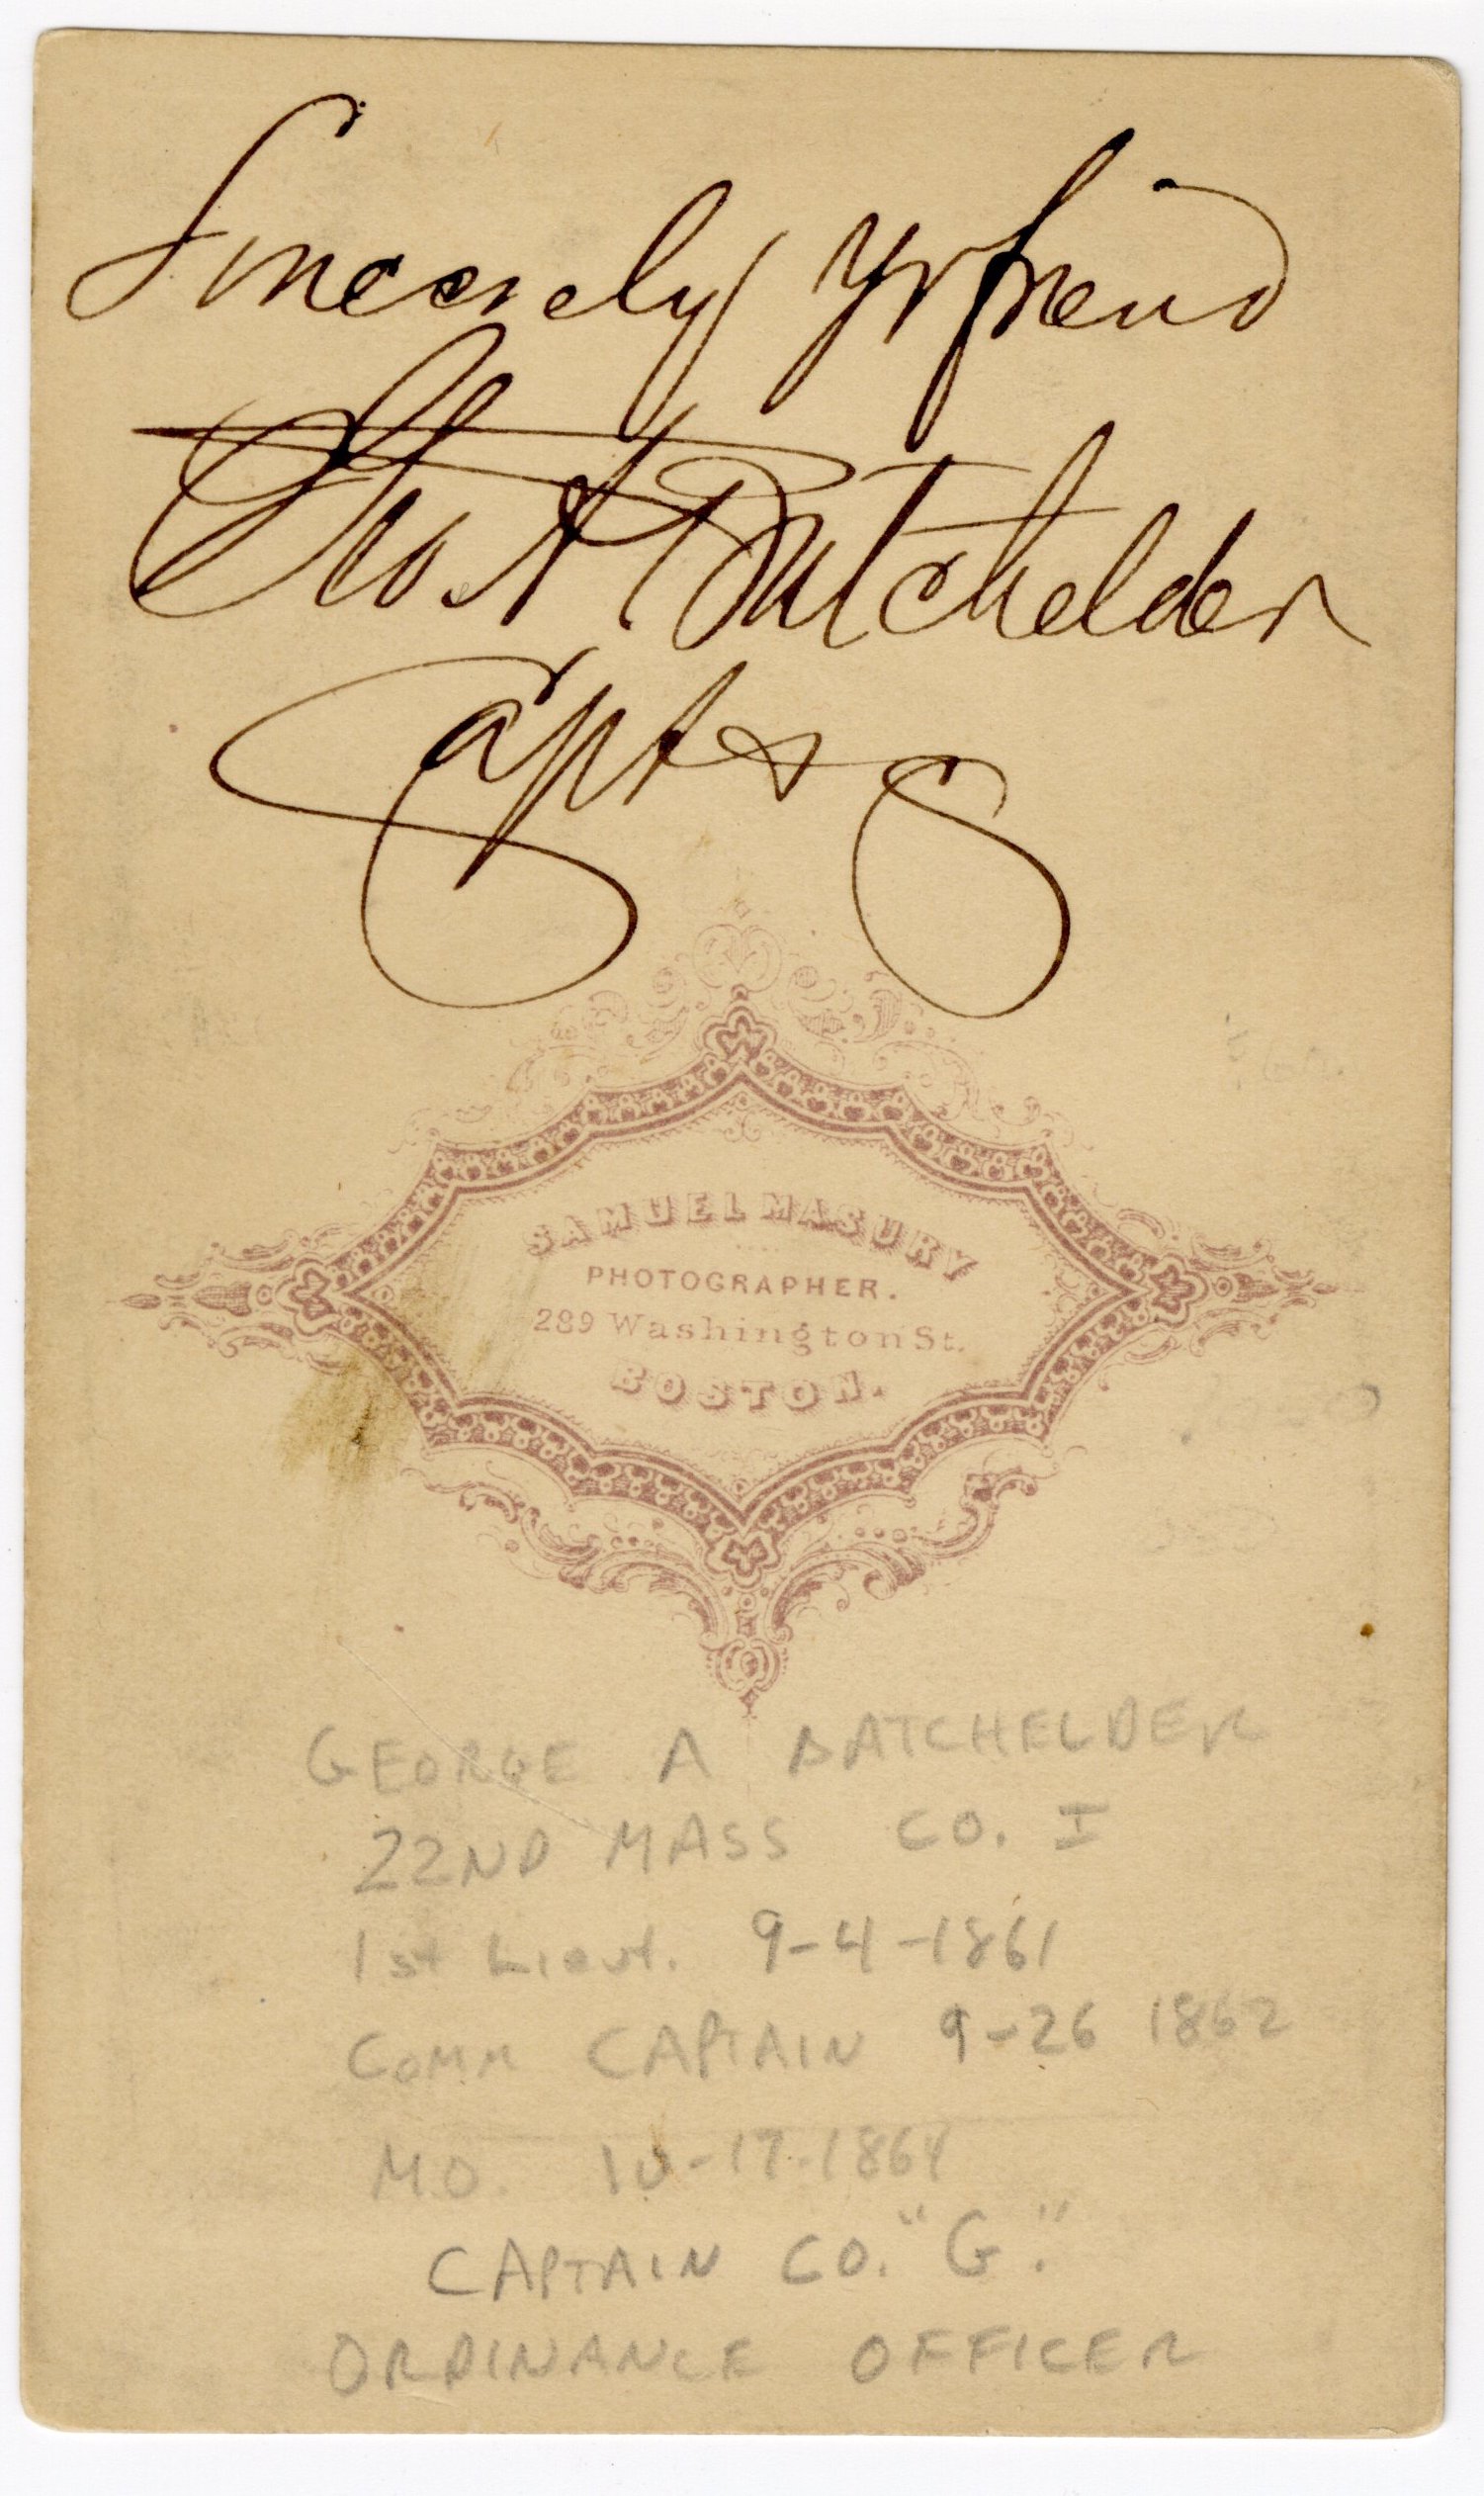 Sincerely yr friend
Geo. A Batchelder
Capt &
SAMUEL MASURY
PHOTOGRAPHER.
289 Washington St.
BOSTON.
GEORGE A BATCHELDER
22ND MASS CO. I
1st Lieut. 9-4-1861
COMM CAPTAIN 9-26 1862
M.O. 10-17-1864
CAPTAIN CO. "G."
ORDINANCE OFFICER